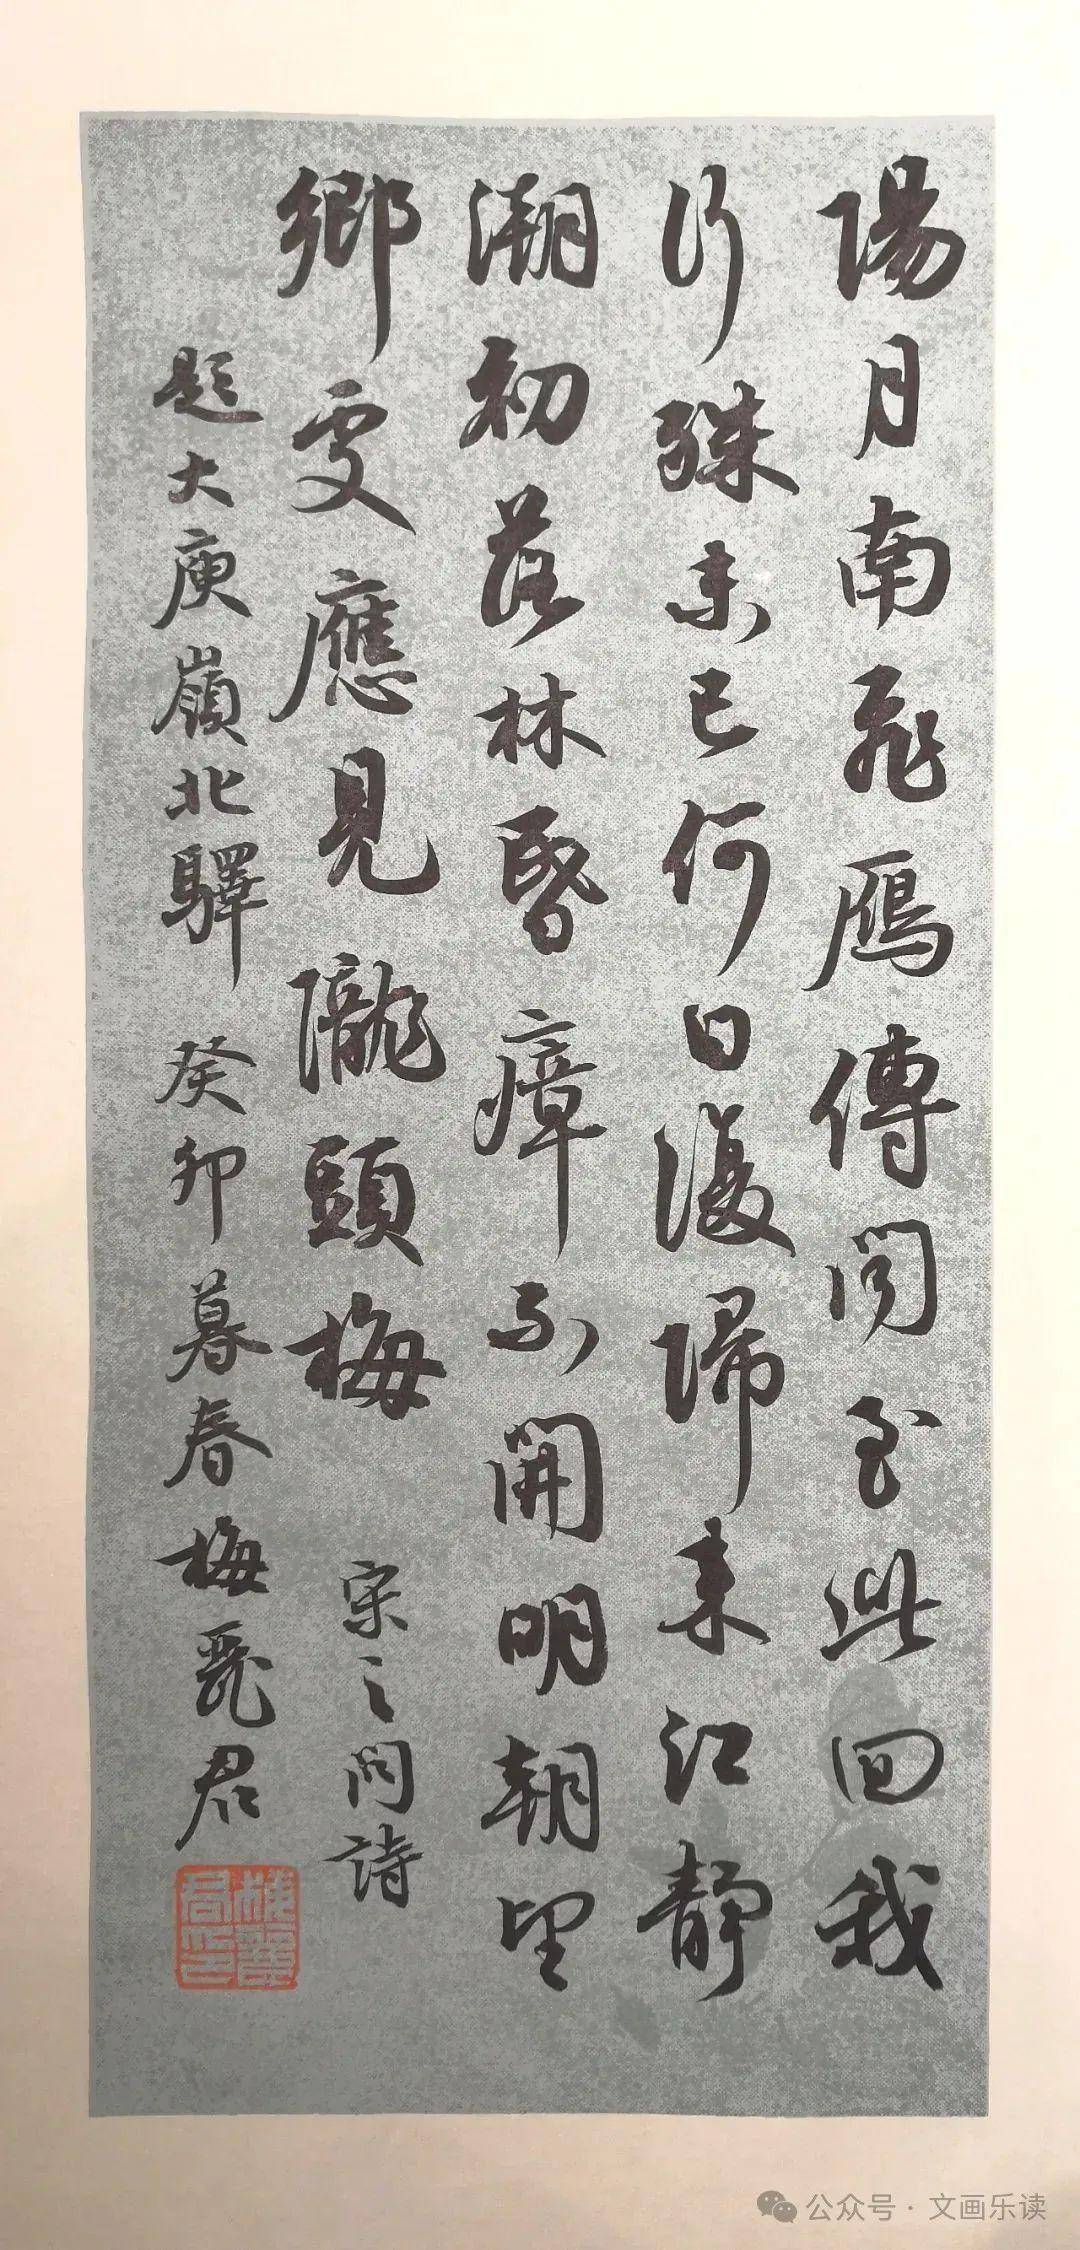 陽月南飛鴈傳聞至此回我
行殊未已何日復歸來江靜
潮初落林昏瘴不開明朝望
鄉處應見隴頭梅
宋之問詩
題大庾嶺北驛 癸卯暮春梅麗君
梅麗君印
公众号·文画乐读